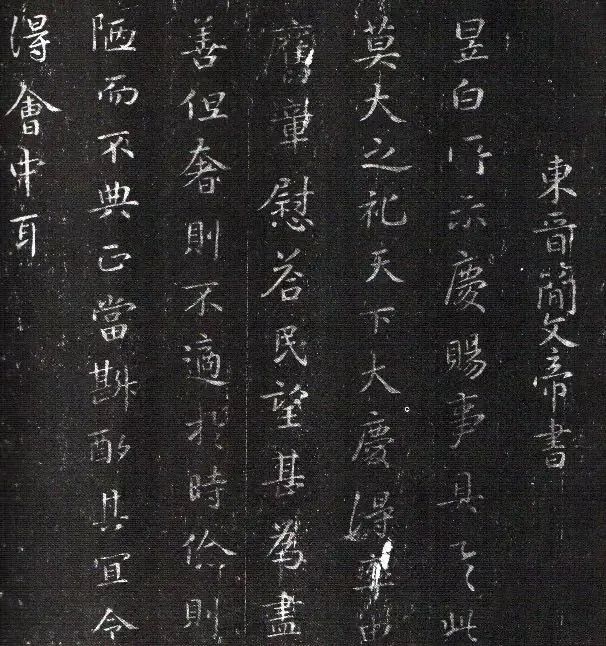 東晉簡文帝書
昱白所示慶賜事具之此
莫大之祀天下大慶得率
應輩慰答民望甚為盡
善但奢則不適於時儉則
陋而不典正當斟酌其宜令
得會中耳